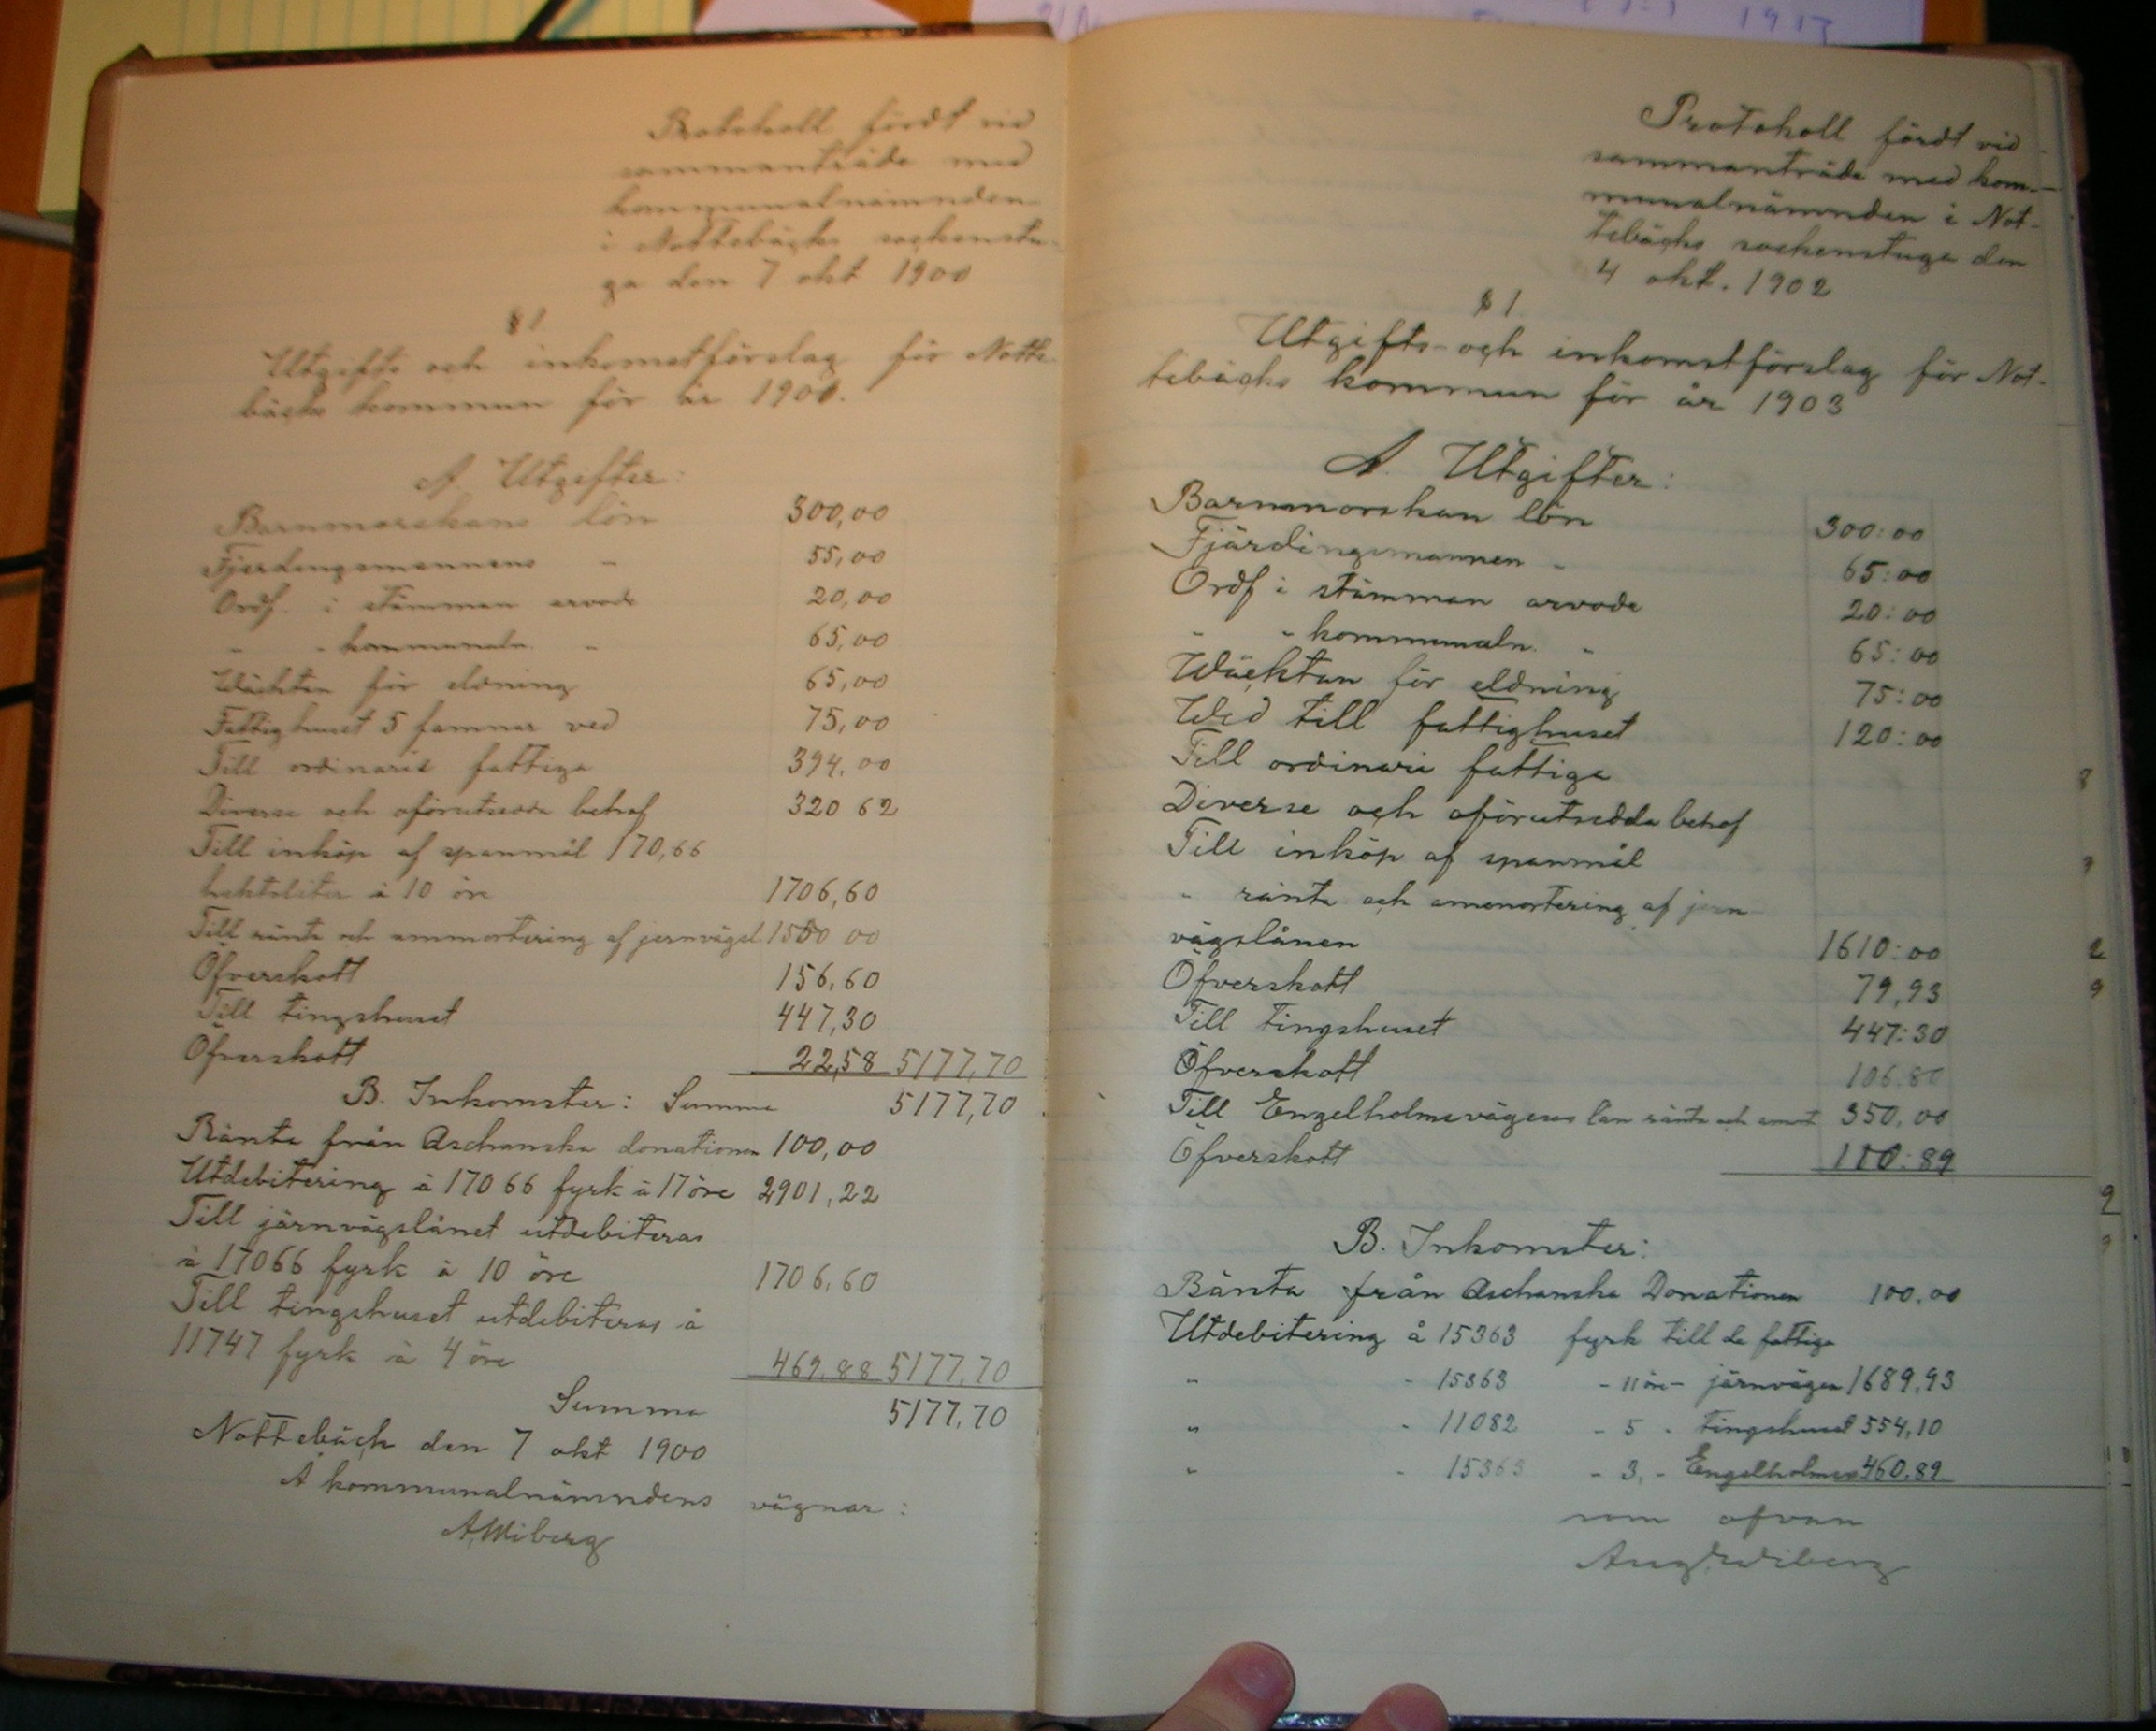 Protokoll fördt vid
sammanträde med
kommunalnämnden
i Nottebäcks sockenstu-
ga den 7 okt 1900
§ 1
Utgifts och inkomstförslag för Notte-
bäcks kommun för år 1900.
A. Utgifter:
Barnmorskans lön 300,00
Fjerdingsmannens " 55,00
Ordf. i stämman arvode 20,00
" " kommunaln. " 65,00
Wäckten för eldning 65,00
Fattighuset 5 famnar ved 75,00
Till ordinarie fattiga 394,00
Diverse och oförutsedda behof 320 62
Till inköp af spanmål 170,66
hektoliter à 10 öre 1706,60
Till ränta och ammortering af jernvägsl 1550 00
Öfverskott 156,60
Till tingshuset 447,30
Öfverskott 22,58 5177,70
B. Inkomster: Summa 5177,70
Ränta från Aschanska donationen 100,00
Utdebitering å 17066 fyrk à 17 öre 2901,22
Till järnvägslånet utdebiteras
å 17066 fyrk à 10 öre 1706,60
Till tingshuset utdebiteras å
11747 fyrk à 4 öre 469,88 5177,70
Summa 5177,70
Nottebäck den 7 okt 1900
Å kommunalnämndens vägnar:
A. Wiberg
Protokoll fördt vid
sammanträde med kom-
munalnämnden i Not-
tebäcks sockenstuga den
4 okt. 1902
§ 1
Utgifts- och inkomstförslag för Not-
tebäcks kommun för år 1903
A. Utgifter:
Barnmorskan lön 300:00
Fjärdingsmannen " 65:00
Ordf i stämman arvode 20:00
" " kommunaln. " 65:00
Wäcktan för eldning 75:00
Wed till fattighuset 120:00
Till ordinarie fattiga
Diverse och oförutsedda behof
Till inköp af spanmål
" ränta och amortering af jern-
vägslånen 1610:00
Öfverskott 79,93
Till tingshuset 447:30
Öfverskott 106.80
Till Engelholmsvägens lån ränta och amort 350,00
Öfverskott 110:89
B. Inkomster:
Ränta från Aschanska Donationen 100,00
Utdebitering å 15363 fyrk till de fattiga
" " 15363 " 11 öre " järnvägen 1689,93
" " 11082 " 5 " tingshuset 554,10
" " 15363 " 3, " Engelholmsv 460,89
som ofvan
Aug. Wiberg